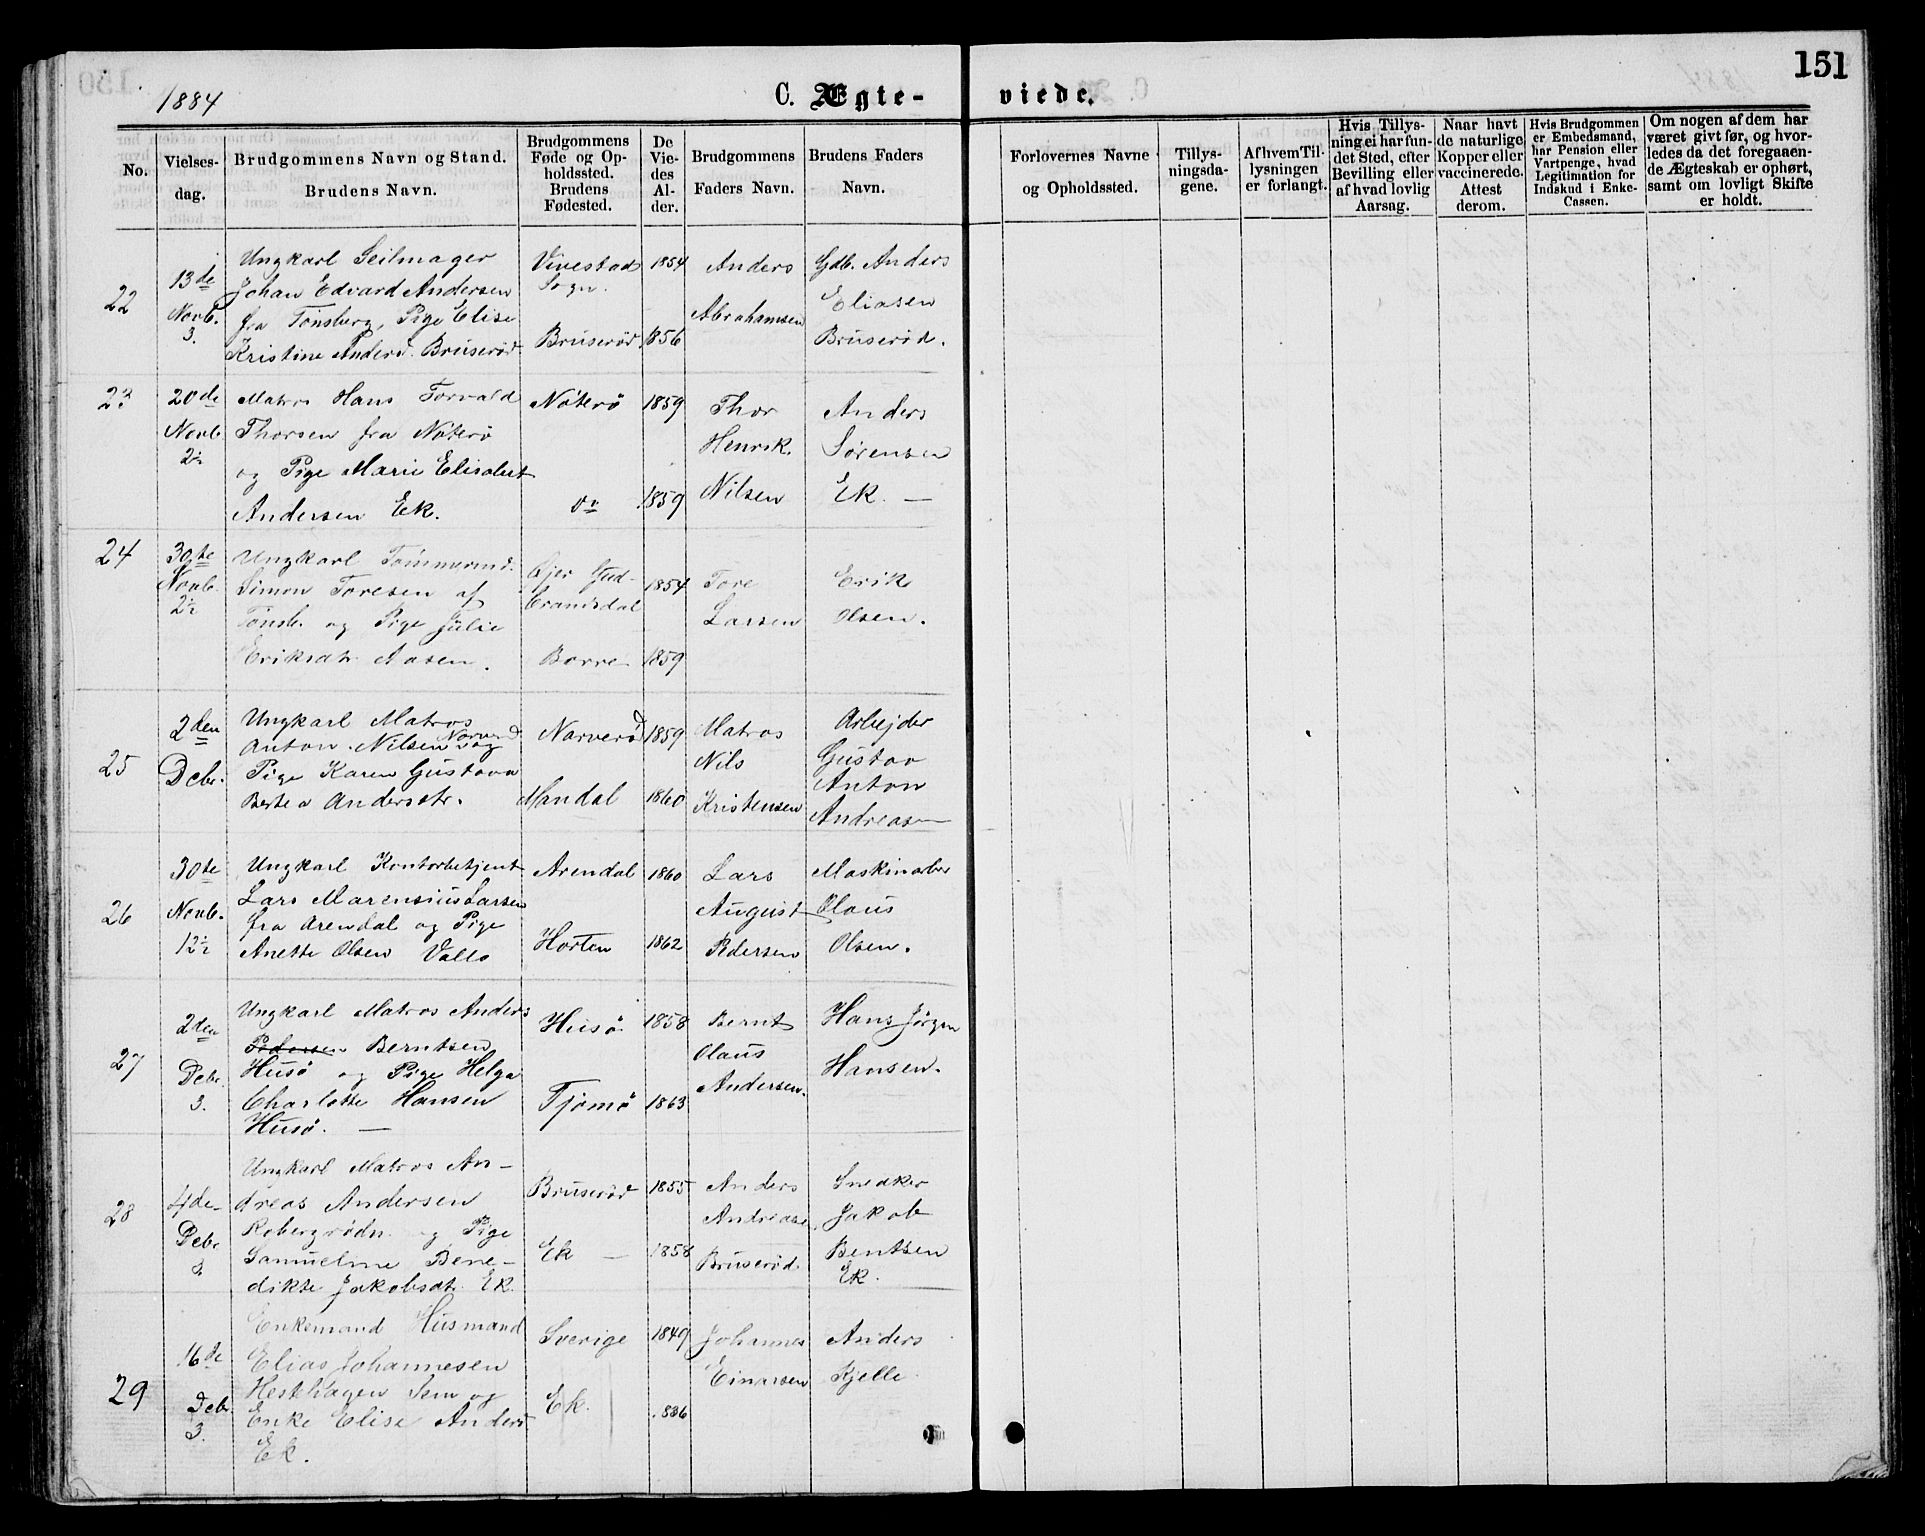 151
1884
C. Ægte-
viede.
No.
Vielses-
dag.
Brudgommens Navn og Stand.
Brudens Navn.
Brudgommens
Føde og Op-
holdssted.
Brudens
Fødested.
De
Vie-
des
Al-
der.
Brudgommens
Faders Navn.
Brudens Faders
Navn.
Forlovernes Navne
og Opholdssted.
Tillys-
ningsda-
gene.
Af hvem Til-
lysningen
er forlangt.
Hvis Tillys-
ning ei har fun-
det Sted, efter
Bevilling eller
af hvad lovlig
Aarsag.
Naar havt
de naturlige
Kopper eller
vaccinerede.
Attest
derom.
Hvis Brudgommen
er Embedsmand,
har Pension eller
Vartpenge, hvad
Legitimation for
Indskud i Enke-
Cassen.
Om nogen af dem har
været givt før, og hvor-
ledes da det foregaaen-
de Ægteskab er ophørt,
samt om lovligt Skifte
er holdt.
22
13de
Novb.
3.
Ungkarl Seilmager
Johan Edvard Andersen
fra Tönsberg, Pige Elise
Kristine Andersd. Bruserød
Vivestad
Sogn.
Bruserød.
1854
1856
Anders
Abrahamsen
Gdb. Anders
Eliasen
Bruserød.
23
20de
Novb.
2½
Matros Hans Torvald
Thorsen fra Nöterö
og Pige Marie Elisabet
Andersen Ek.
Nöterö
do
1859
1859
Thor
Henrik
Nilsen
Anders
Sörensen
Ek. —
24
30te
Novb.
2½
Ungkarl Tömmermd.
Simon Toresen af
Tönsb. og Pige Julie
Eriksdtr. Aasen.
Gud-
brandsdal
Borre
1854
1859
Tore
Larsen
Erik
Olsen.
25
2den
Debr.
Ungkarl Matros
Anton Nilsen Narverød og
Pige Karen Gustava
Bertea Andersdtr.
Narverød
Mandal
1859
1860
Matros
Nils
Kristensen
Arbejder
Gustav
Anton
Andreasen
26
30te
Novb.
12½
Ungkarl Kontorbetjent
Lars Marensius Larsen
fra Arendal og Pige
Anette Olsen Vallø
Arendal
Horten
1860
1862
Lars
August
Pedersen
Maskinarber
Olaus
Olsen.
27
2den
Debr.
3.
Ungkarl Matros Anders
Pedersen Berntsen
Husö og Pige Helga
Charlotte Hansen
Husö. —
Husö
Tjömö
1858
1863
Bernt
Olaus
Andersen.
Hans Jörgen
Hansen.
28
4de
Debr.
Ungkarl Matros An-
dreas Andersen
Robergrødn. og Pige
Samueline Bene-
dikte Jakobsdtr. Ek.
Bruserød
Ek —
1855
1858
Anders
Andreasen
Bruserød
Snedker
Jakob
Bentsen
Ek.
29
16de
Debr.
3.
Enkemand Husmand
Elias Johannesen
Hesthagen Sem og
Enke Elise Andersd.
Ek.
Sverige
Ek.
1849
1836
Johannes
Einarsen
Anders
Kjelle